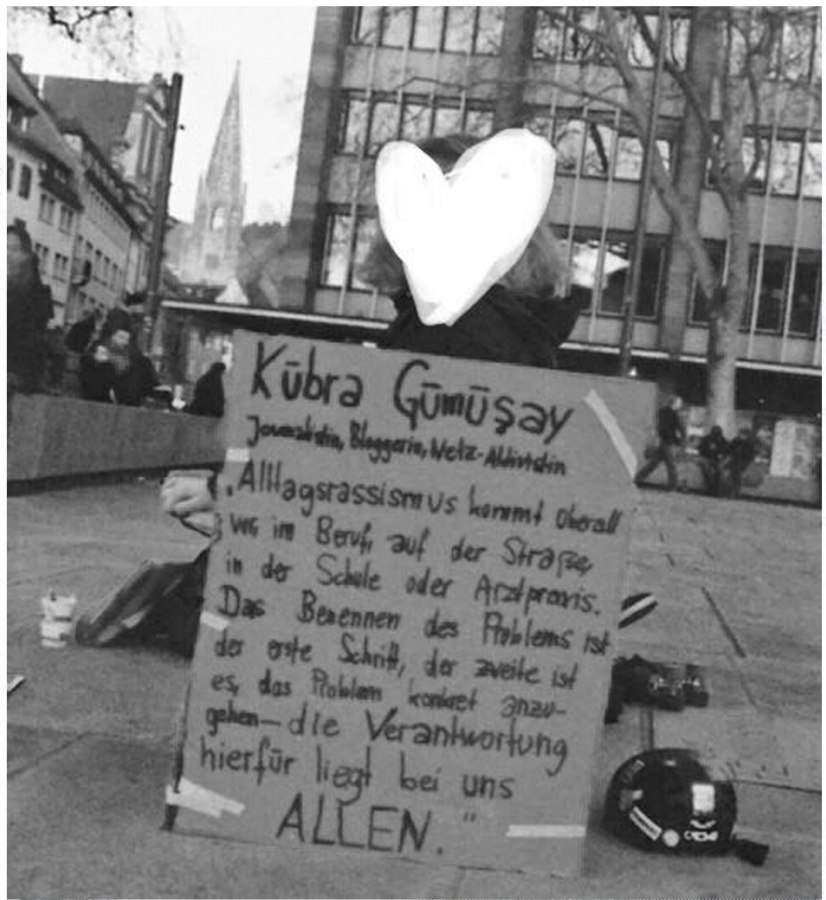 Kübra Gümüşay
Journalistin, Bloggerin, Netz-Aktivistin
„Alltagsrassismus kommt überall
vor, im Beruf, auf der Straße,
in der Schule oder Arztpraxis.
Das Benennen des Problems ist
der erste Schritt, der zweite ist
es, das Problem konkret anzu-
gehen – die Verantwortung
hierfür liegt bei uns
ALLEN."